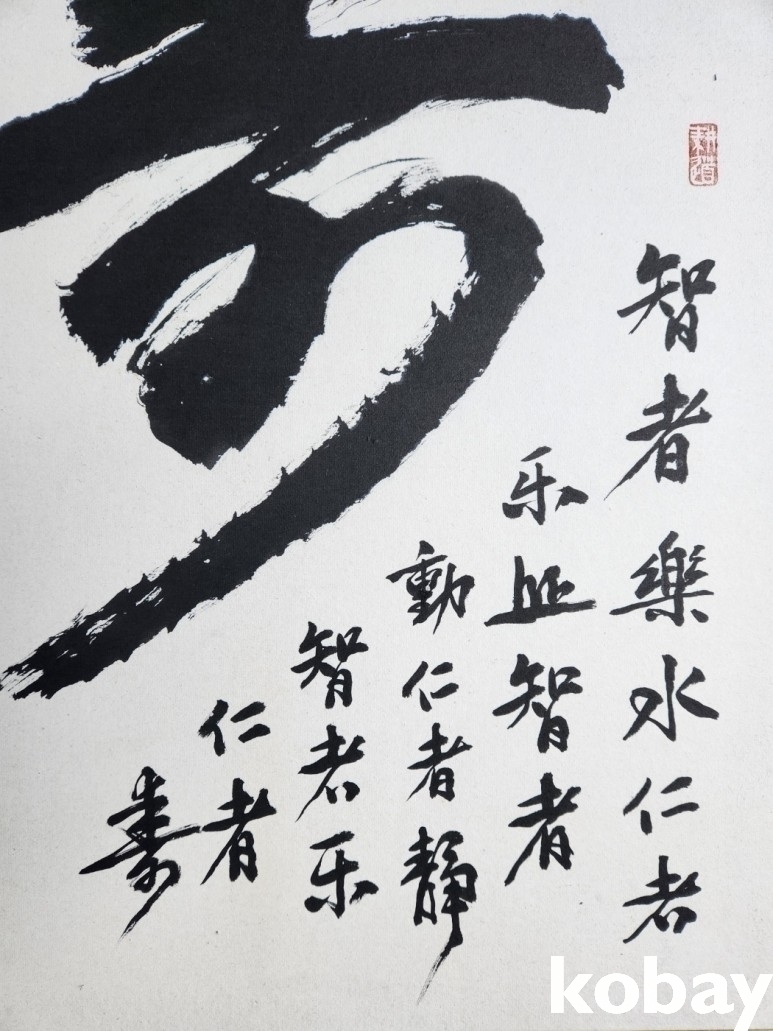 耕道
智者樂水仁者
乐山智者
動仁者靜
智者乐
仁者
寿
kobay